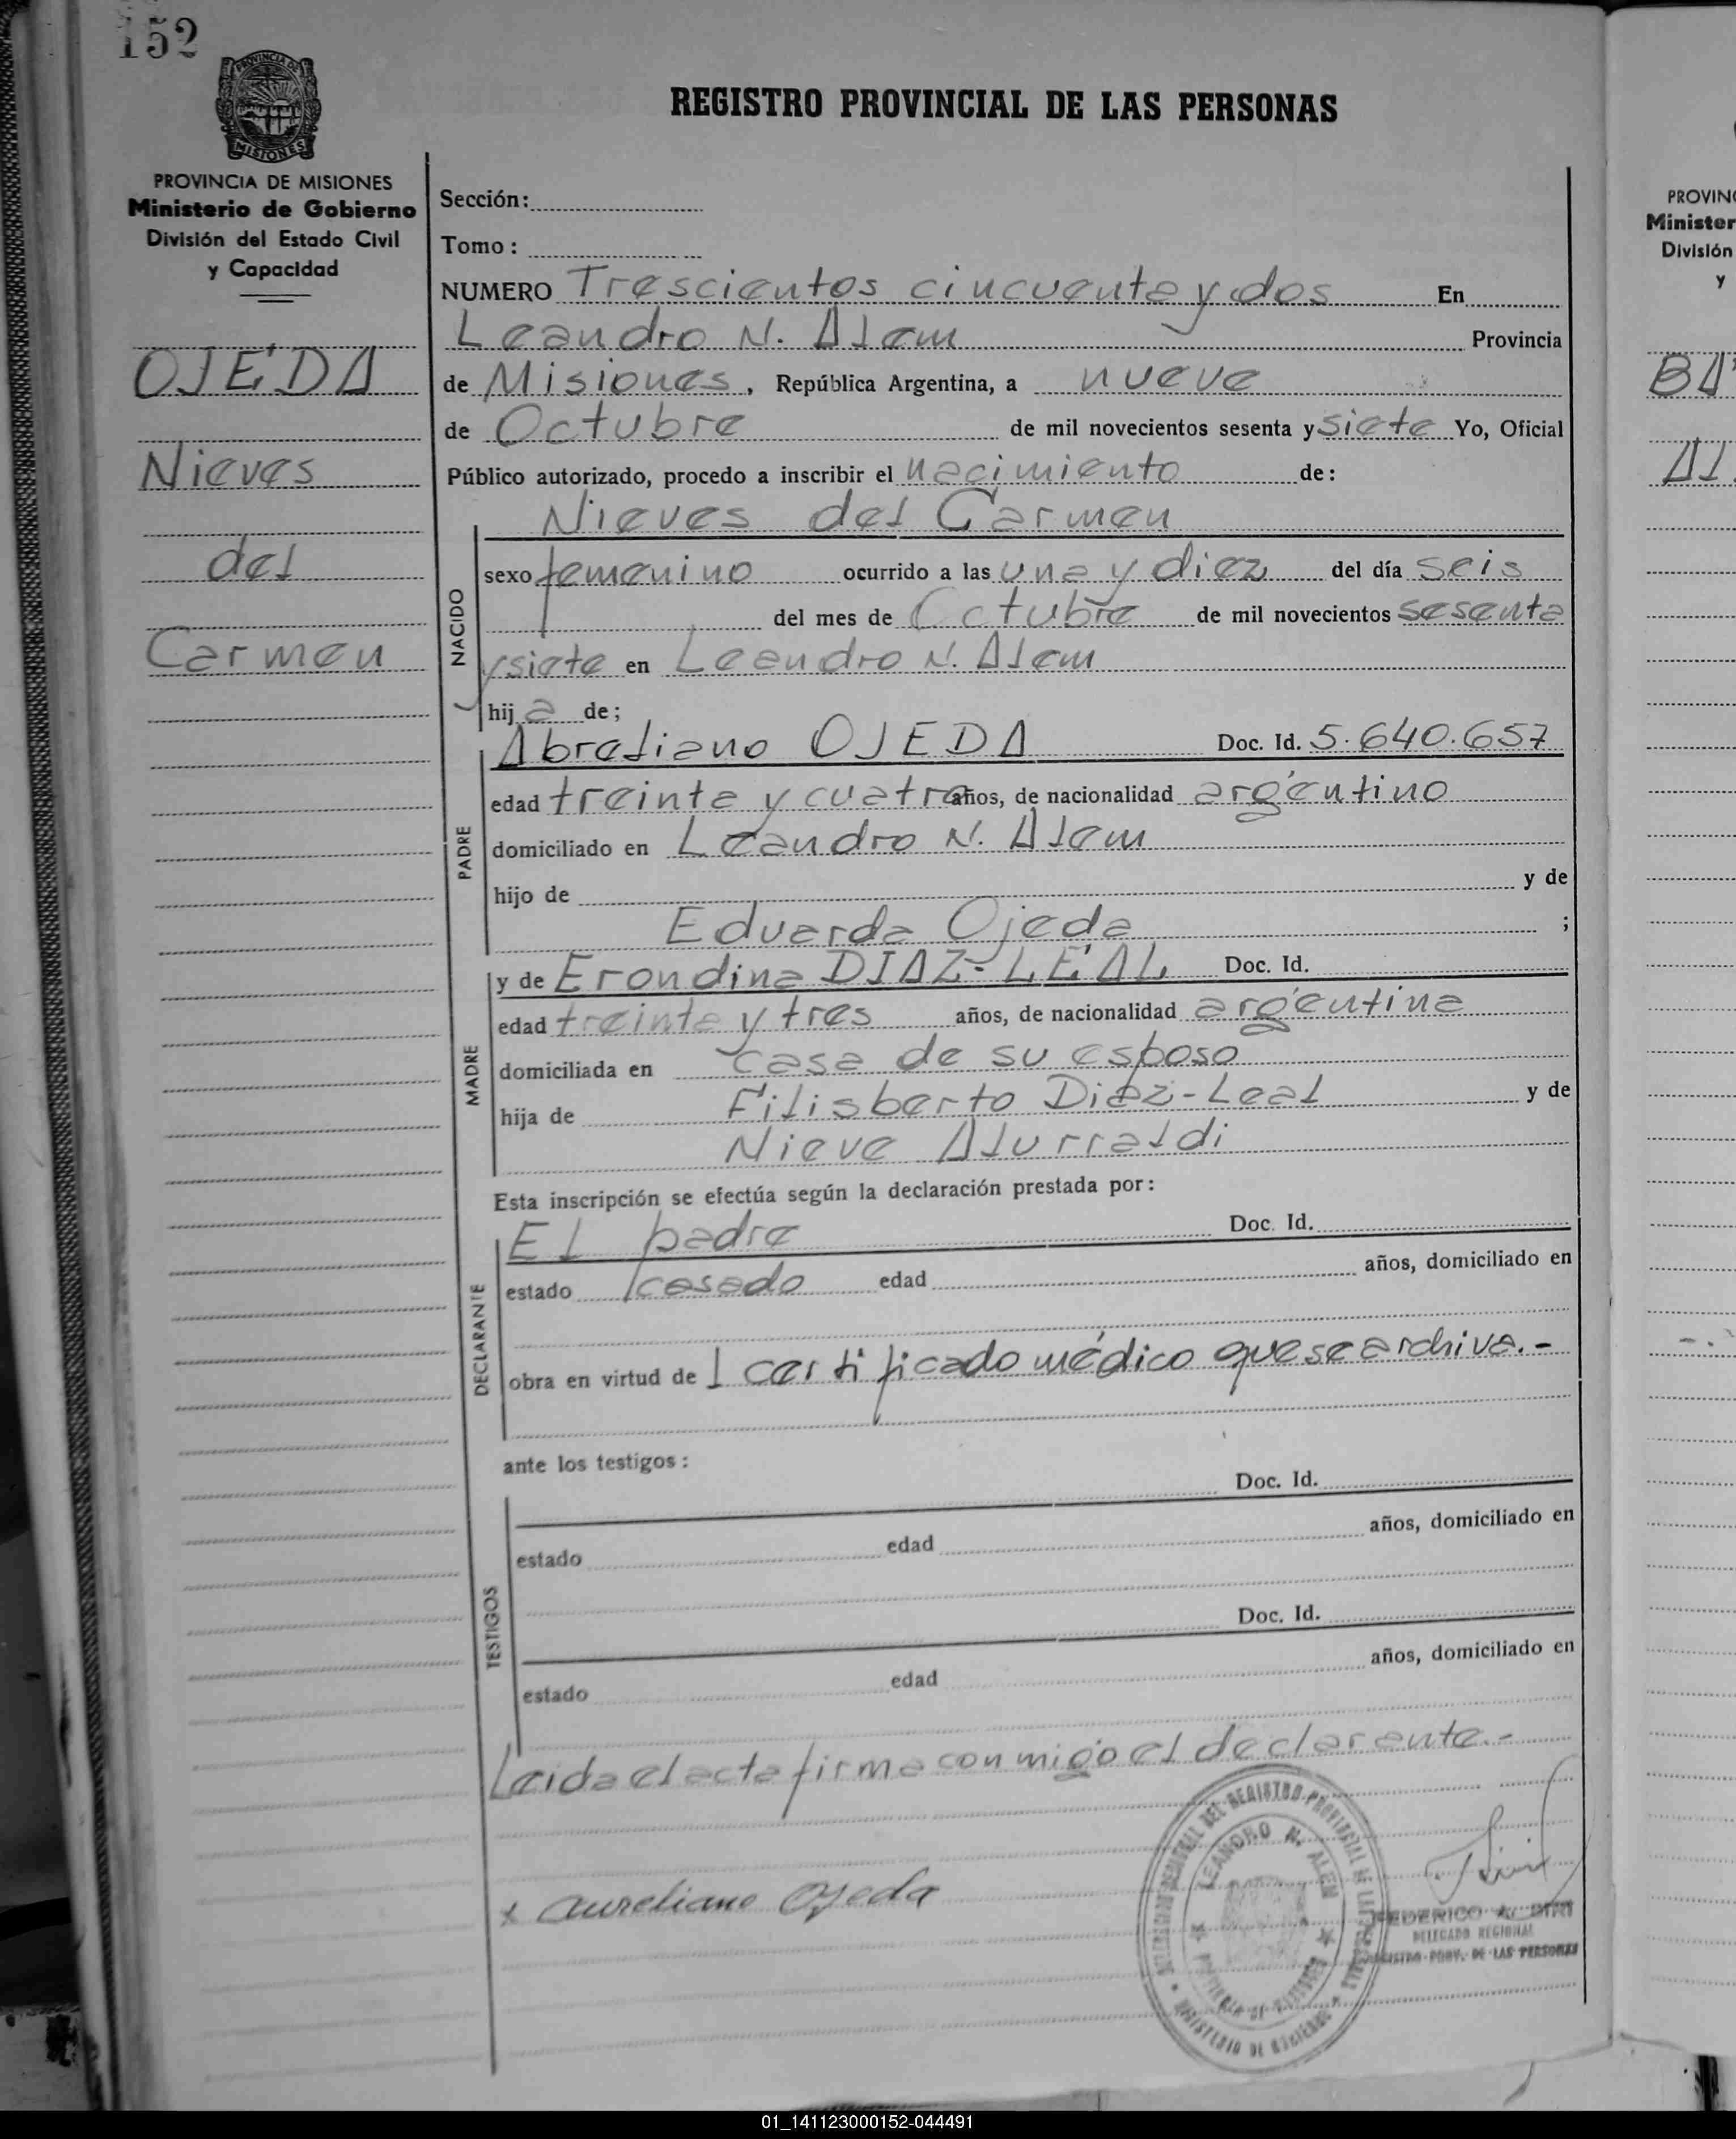 152
PROVINCIA DE
MISIONES
REGISTRO PROVINCIAL DE LAS PERSONAS
PROVINCIA DE MISIONES
Ministerio de Gobierno
División del Estado Civil
y Capacidad
OJEDA
Nieves
del
Carmen
Sección:
Tomo:
NUMERO Trescientos cincuenta y dos En
Leandro N. Alem Provincia
de Misiones, República Argentina, a nueve
de Octubre de mil novecientos sesenta y siete Yo, Oficial
Público autorizado, procedo a inscribir el nacimiento de:
Nieves del Carmen
NACIDO
sexo femenino ocurrido a las una y diez del día seis
del mes de Octubre de mil novecientos sesenta
y siete en Leandro N. Alem
hija de;
PADRE
Abreliano OJEDA Doc. Id. 5.640.657
edad treinta y cuatro años, de nacionalidad argentino
domiciliado en Leandro N. Alem
hijo de y de
Eduarda Ojeda ;
MADRE
y de Erondina DIAZ-LEAL Doc. Id.
edad treinta y tres años, de nacionalidad argentina
domiciliada en casa de su esposo
hija de Filisberto Diaz-Leal y de
Nieve Alurraldi
Esta inscripción se efectúa según la declaración prestada por:
DECLARANTE
El padre Doc. Id.
estado casado edad años, domiciliado en
obra en virtud de 1 certificado médico que se archiva.-
ante los testigos:
TESTIGOS
Doc. Id.
estado edad años, domiciliado en
Doc. Id.
estado edad años, domiciliado en
Leida el acta firma conmigo el declarante.-
x aureliano Ojeda
DEL REGISTRO PROVINCIAL DE LAS PERSONAS
LEANDRO N. ALEM
PROVINCIA DE MISIONES
MINISTERIO DE GOBIERNO
FEDERICO A.
DELEGADO REGIONAL
REGISTRO PROV. DE LAS PERSONAS
PROVIN
Minister
División
y
BA
Al
01_141123000152-044491